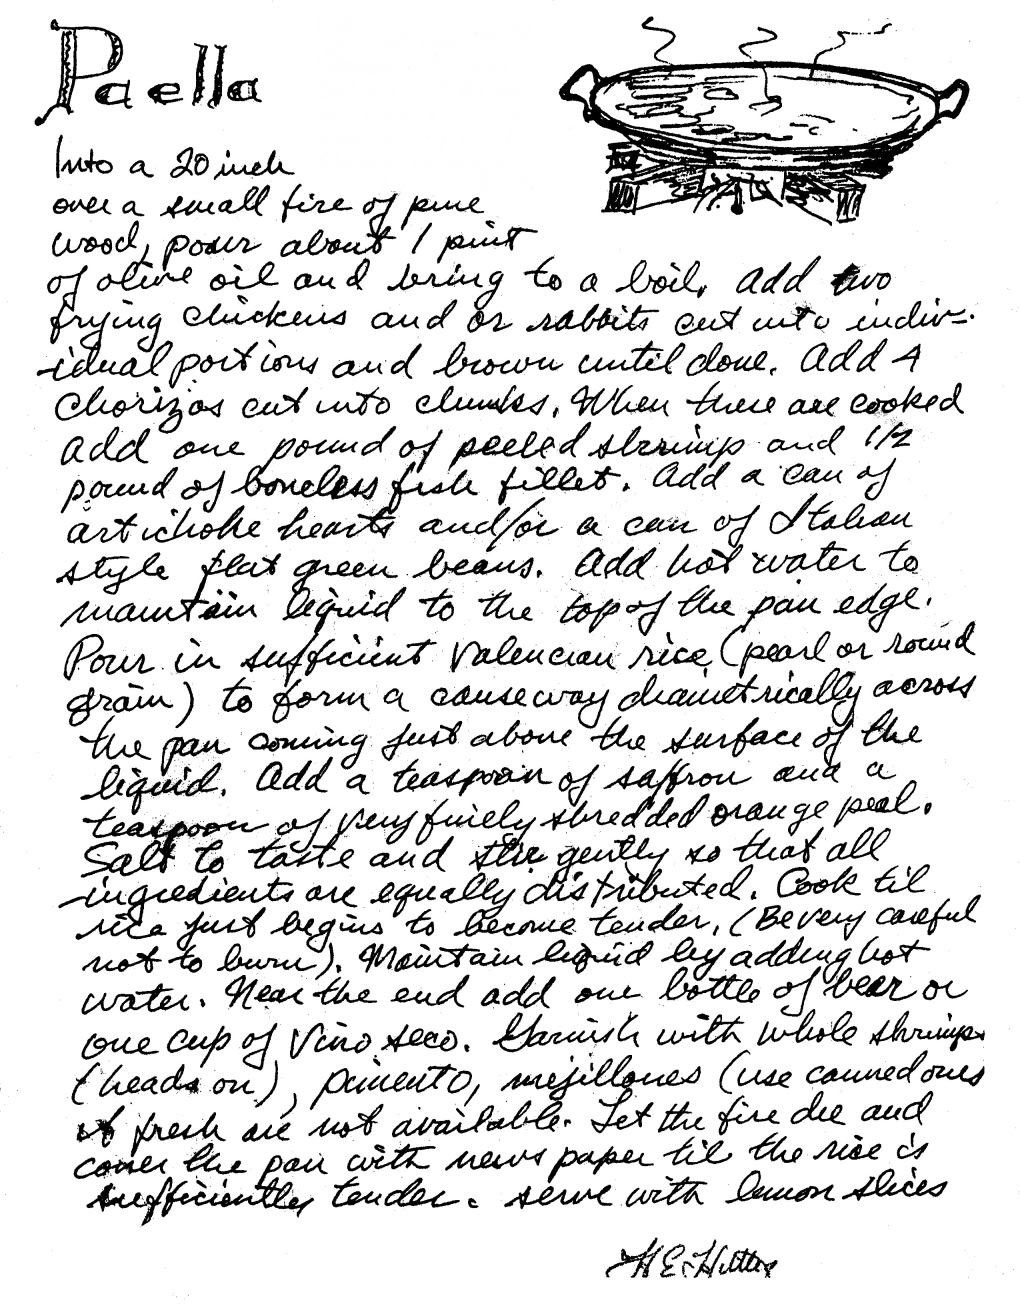 Paella
Into a 20 inch
over a small fire of pine
wood, pour about 1 pint
of olive oil and bring to a boil. Add two
frying chickens and or rabbits cut into indiv-
idual portions and brown until done. Add 4
Chorizos cut into chunks. When these are cooked
add one pound of peeled shrimp and 1/2
pound of boneless fish fillet. Add a can of
artichoke hearts and/or a can of Italian
style flat green beans. Add hot water to
maintain liquid to the top of the pan edge.
Pour in sufficient Valencian rice (pearl or round
grain) to form a causeway diametrically across
the pan coming just above the surface of the
liquid. Add a teaspoon of saffron and a
teaspoon of very finely shredded orange peal.
Salt to taste and stir gently so that all
ingredients are equally distributed. Cook til
rice just begins to become tender. (Be very careful
not to burn). Maintain liquid by adding hot
water. Near the end add one bottle of beer or
one cup of Vino seco. Garnish with whole shrimps
(heads on), pimento, mejillones (use canned ones
if fresh are not available. Let the fire die and
cover the pan with news paper til the rice is
sufficiently tender. serve with lemon slices
H E